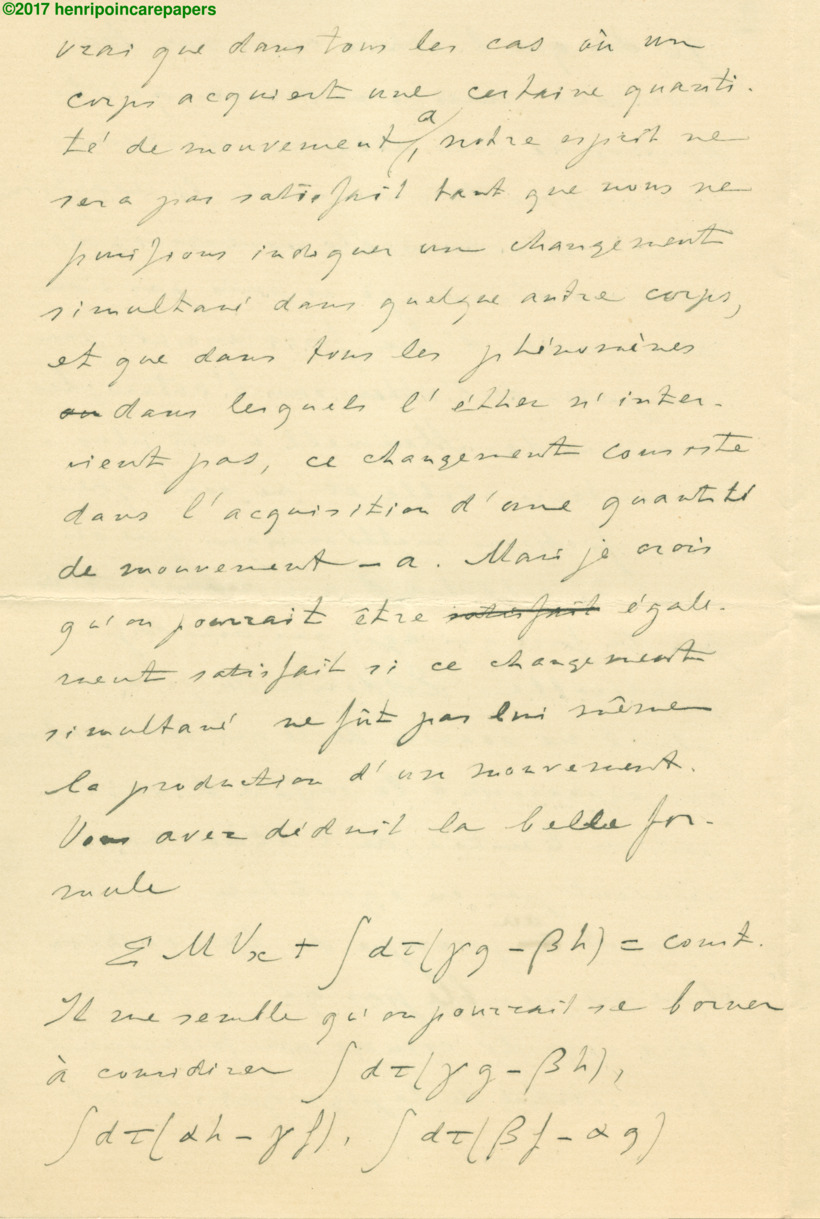 ©2017 henripoincarepapers
vrai que dans tous les cas où un
corps acquiert une certaine quanti-
té de mouvement a, notre esprit ne
sera pas satisfait tant que nous ne
puissions indiquer un changement
simultané dans quelque autre corps,
et que dans tous les phénomènes
ou dans lesquels l'éther n'inter-
vient pas, ce changement consiste
dans l'acquisition d'une quantité
de mouvement – a. Mais je crois
qu'on pourrait être satisfait égale-
ment satisfait si ce changement
simultané ne fût pas lui même
la production d'un mouvement.
Vous avez déduit la belle for-
mule
Σ M Vx + ∫ dτ(γg – βh) = const.
Il me semble qu'on pourrait se borner
à considérer ∫ dτ(γg – βh),
∫ dτ(αh – γf), ∫ dτ(βf – αg)